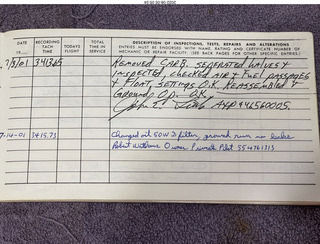 DATE
19
RECORDING TACH TIME
TODAYS FLIGHT
TOTAL TIME IN SERVICE
DESCRIPTION OF INSPECTIONS, TESTS, REPAIRS AND ALTERATIONS
ENTRIES MUST BE ENDORSED WITH NAME, RATING AND CERTIFICATE NUMBER OF
MECHANIC OR REPAIR FACILITY. (SEE BACK PAGES FOR OTHER SPECIFIC ENTRIES.)
REMOVED CARB. SEPERATED HALVES &
INSPECTED, CHECKED AIR & FUEL PASSAGES
& FLOAT, SETTINGS O.K. REASSEMBLED &
GROUND OP. O.K.
A&P 446560005
7-14-01 3415.73 Changed oil 50W & filter, ground run no leaks
Robert Owner Private Pilot 554761313